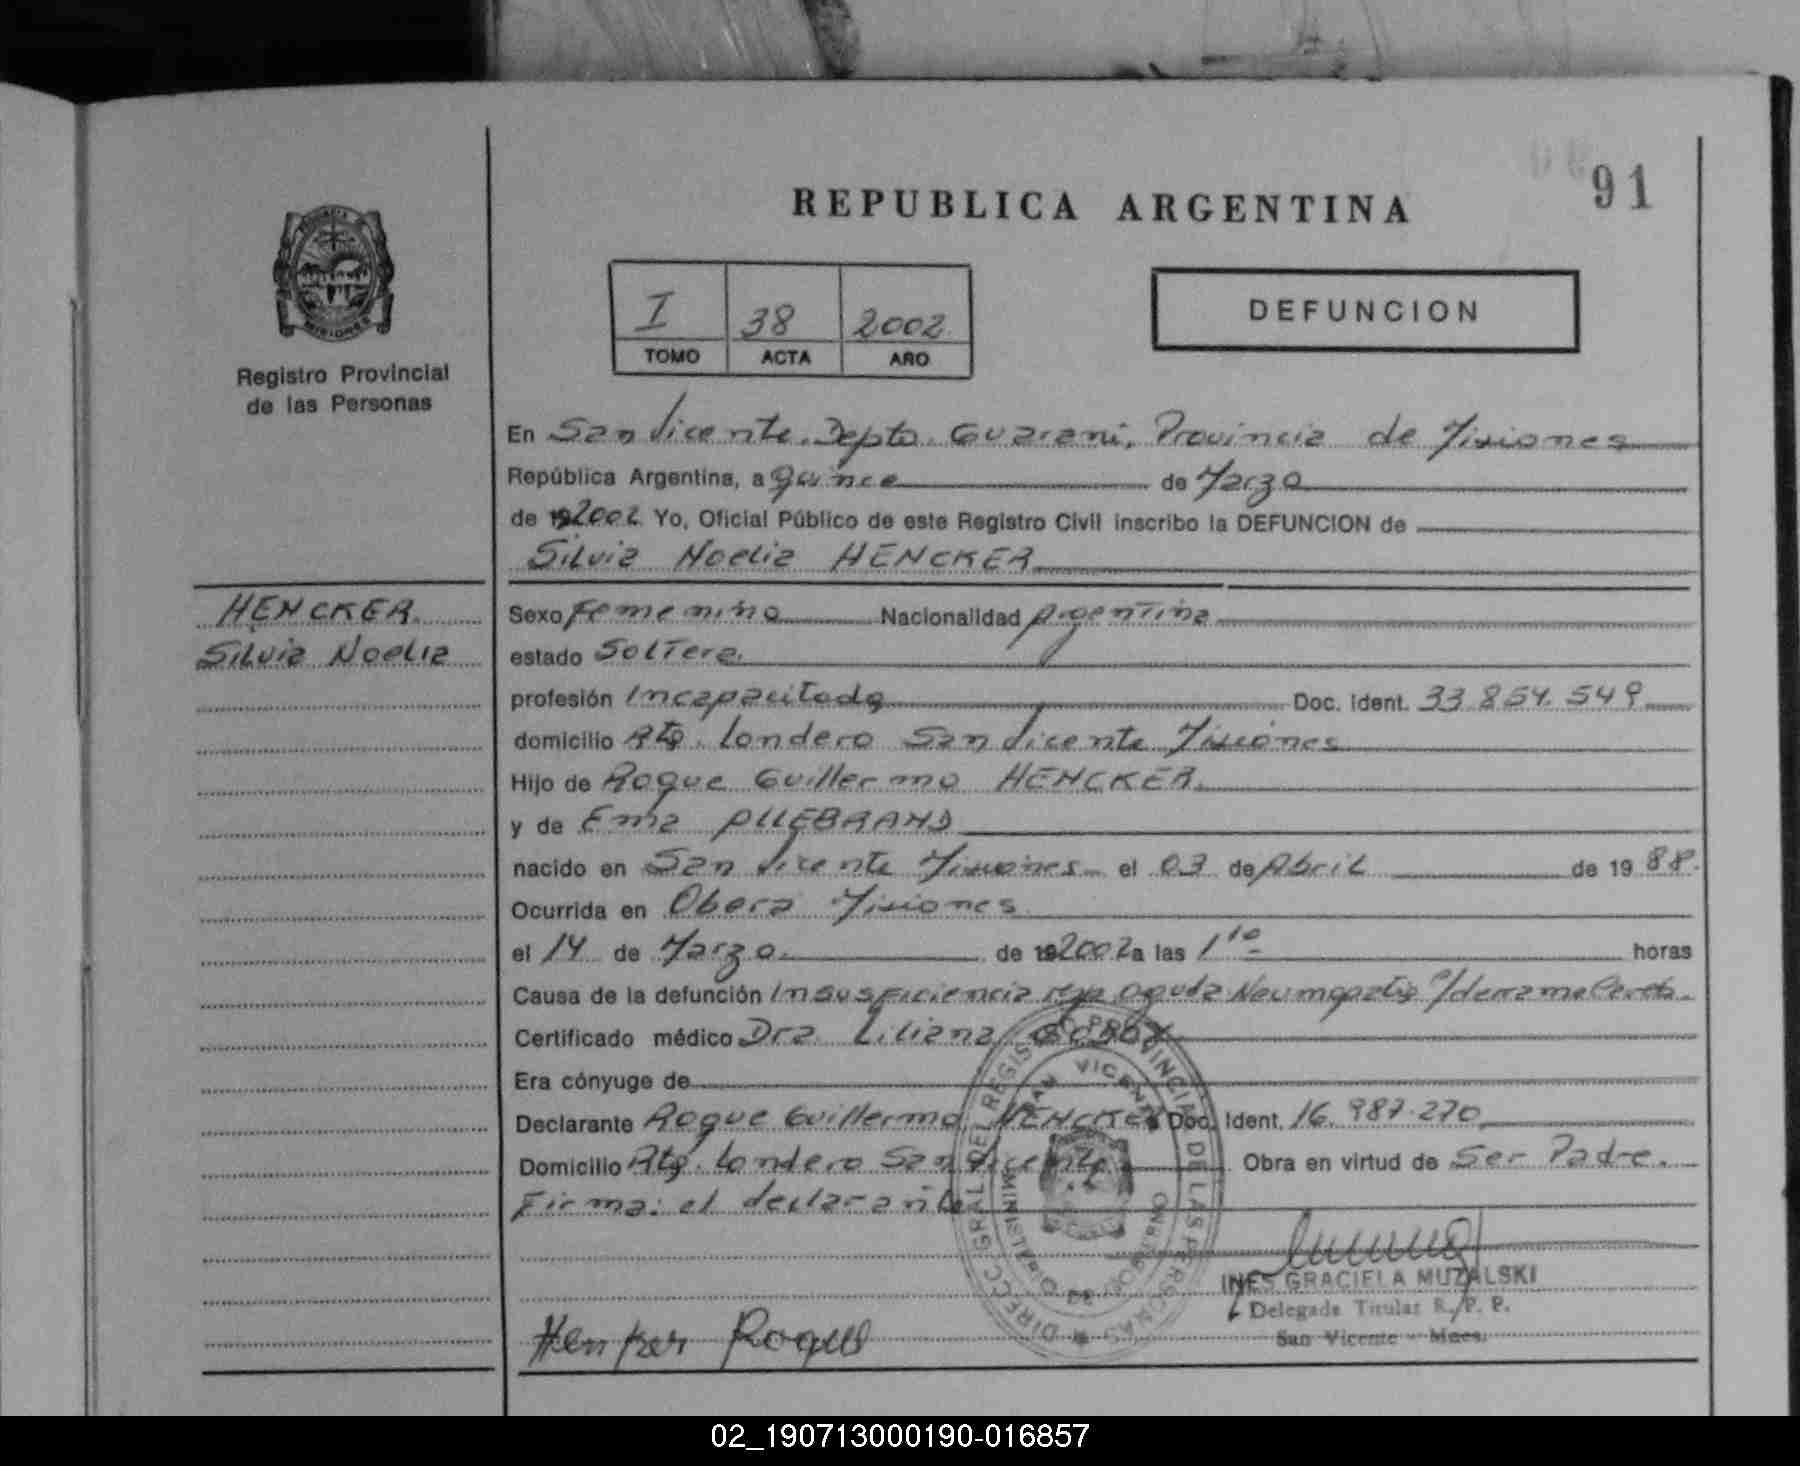 91
REPUBLICA ARGENTINA
I 38 2002
TOMO ACTA AÑO
DEFUNCION
MISIONES
Registro Provincial
de las Personas
En San Vicente. Depto. Guarani, Provincia de Misiones
República Argentina, a quince de Marzo
de 192002 Yo, Oficial Público de este Registro Civil inscribo la DEFUNCION de
Silvia Noelia HENCKER
HENCKER
Silvia Noelia
Sexo Femenino Nacionalidad Argentina
estado Soltera.
profesión Incapacitada Doc. Ident. 33.854.549
domicilio Rtg. Londero San Vicente Misiones
Hijo de Roque Guillermo HENCKER.
y de Ema
nacido en San Vicente Misiones el 03 de Abril de 19 88.
Ocurrida en Obera Misiones
el 14 de Marzo de 192002 a las 1 10 horas
Causa de la defunción Insuficiencia resp aguda Neumopatia
Certificado médico Dra Liliana
Era cónyuge de
Declarante Roque Guillermo HENCKER Doc. Ident. 16.987.270
Domicilio Rtg. Londero San Vicente Obra en virtud de Ser Padre.
Firma: el declarante
DIRECC GRAL DEL REGISTRO PROVINCIAL DE LAS PERSONAS
SAN VICENTE
MISIONES
INES GRACIELA MUZALSKI
Delegada Titular R. P. P.
San Vicente - Mnes.
Henker Roque
02_190713000190-016857